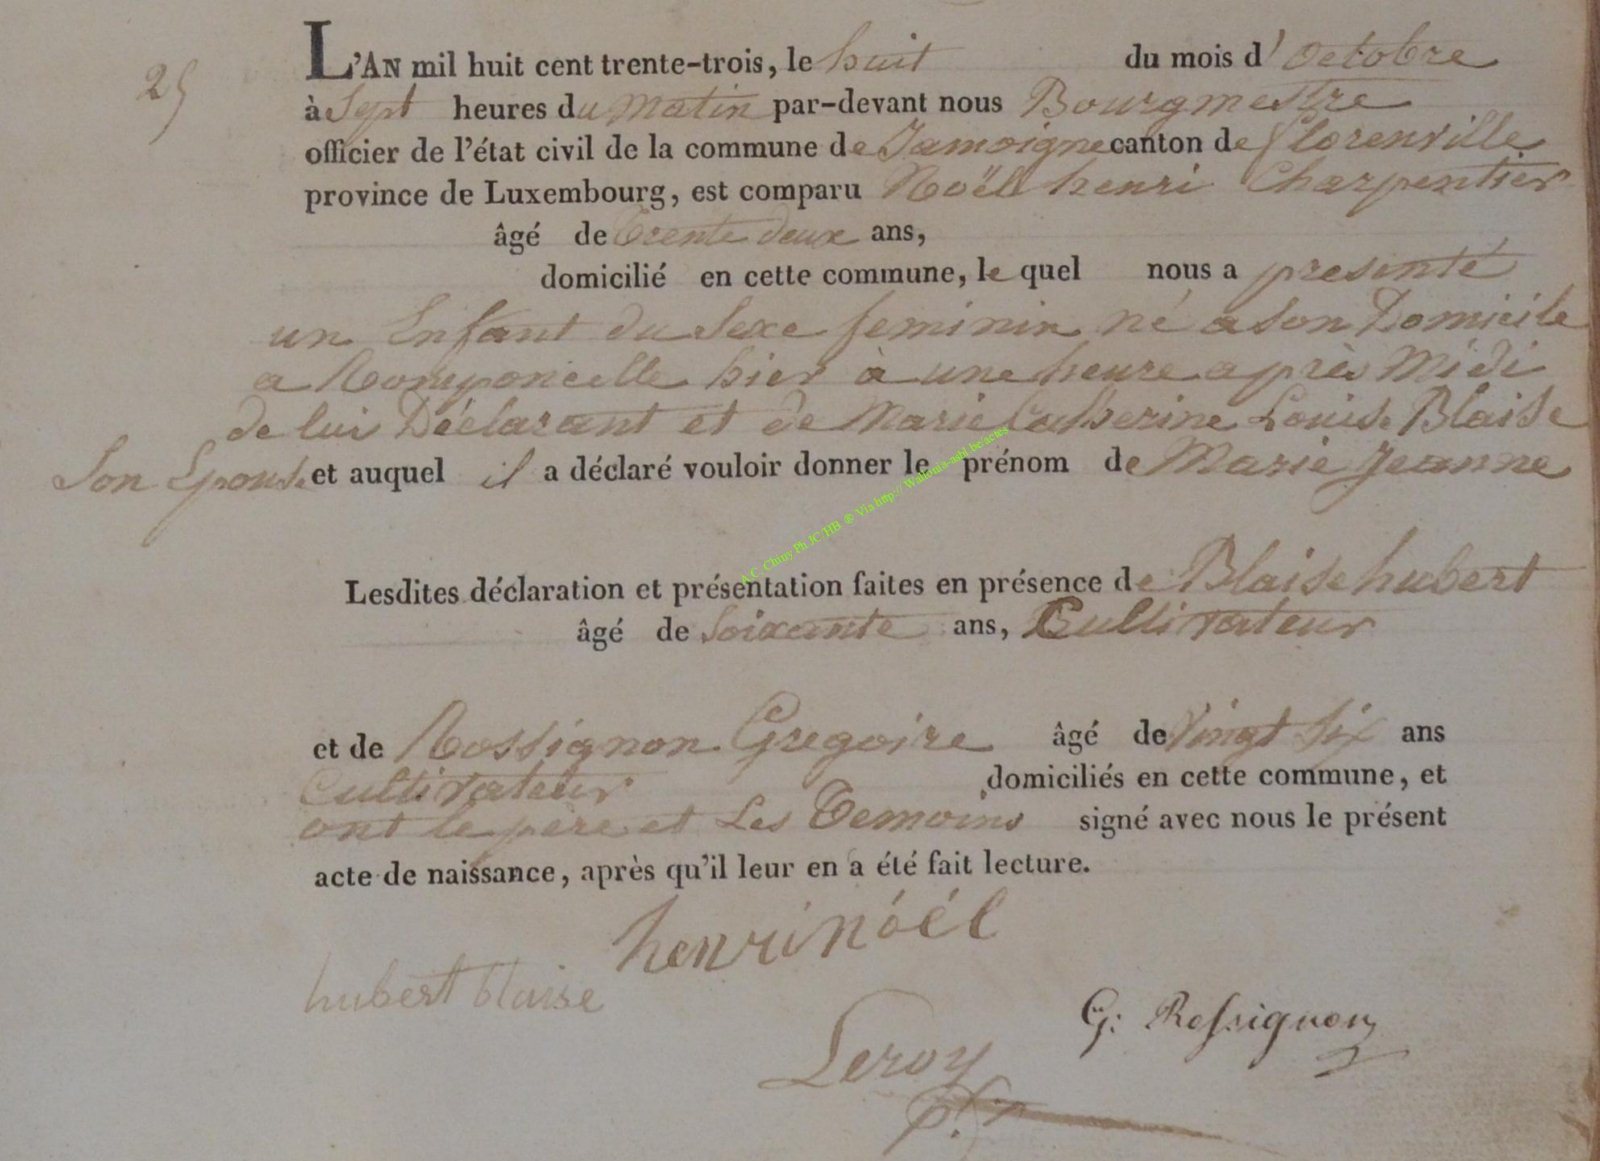 25
L'AN mil huit cent trente-trois, le huit du mois d'Octobre
à Sept heures du Matin par-devant nous Bourgmestre
officier de l'état civil de la commune de Jamoigne canton de florenville
province de Luxembourg, est comparu Noël henri Charpentier
âgé de Trente deux ans,
domicilié en cette commune, le quel nous a presenté
un Enfant du Sexe feminin né a Son Domicile
a Romponcelle hier à une heure après Midi
de lui Déclarant et de Marie Catherine Louise Blaise
Son Epouse et auquel il a déclaré vouloir donner le prénom de Marie Jeanne
A.C. Chiny Ph JC HB ® Via http:// Wallonia-asbl.be/actes
Lesdites déclaration et présentation faites en présence de Blaise hubert
âgé de Soixante ans, Cultivateur
et de Rossignon Gregoire âgé de Vingt Six ans
Cultivateur domiciliés en cette commune, et
ont le père et Les Temoins signé avec nous le présent
acte de naissance, après qu'il leur en a été fait lecture.
henri nóél
hubert blaise
G: Rossignon
Leroy